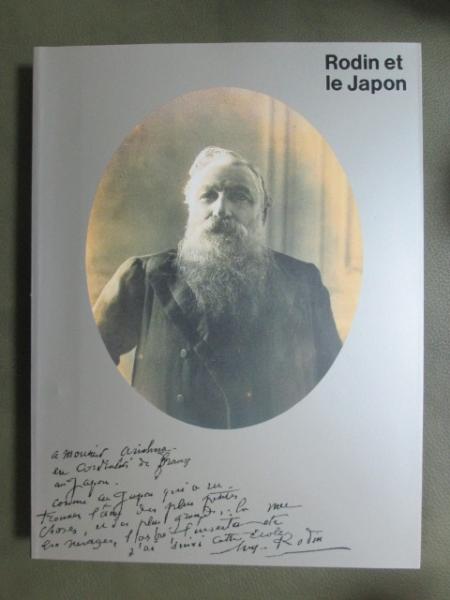 Rodin et
le Japon
a monsieur Arishma
en Cordialité de France
au Japon.
comme au Japon qui a su
trouver l'âme des plus petites
choses, et des plus grandes, la mer
les nuages,
j'ai suivi cette école
Aug. Rodin